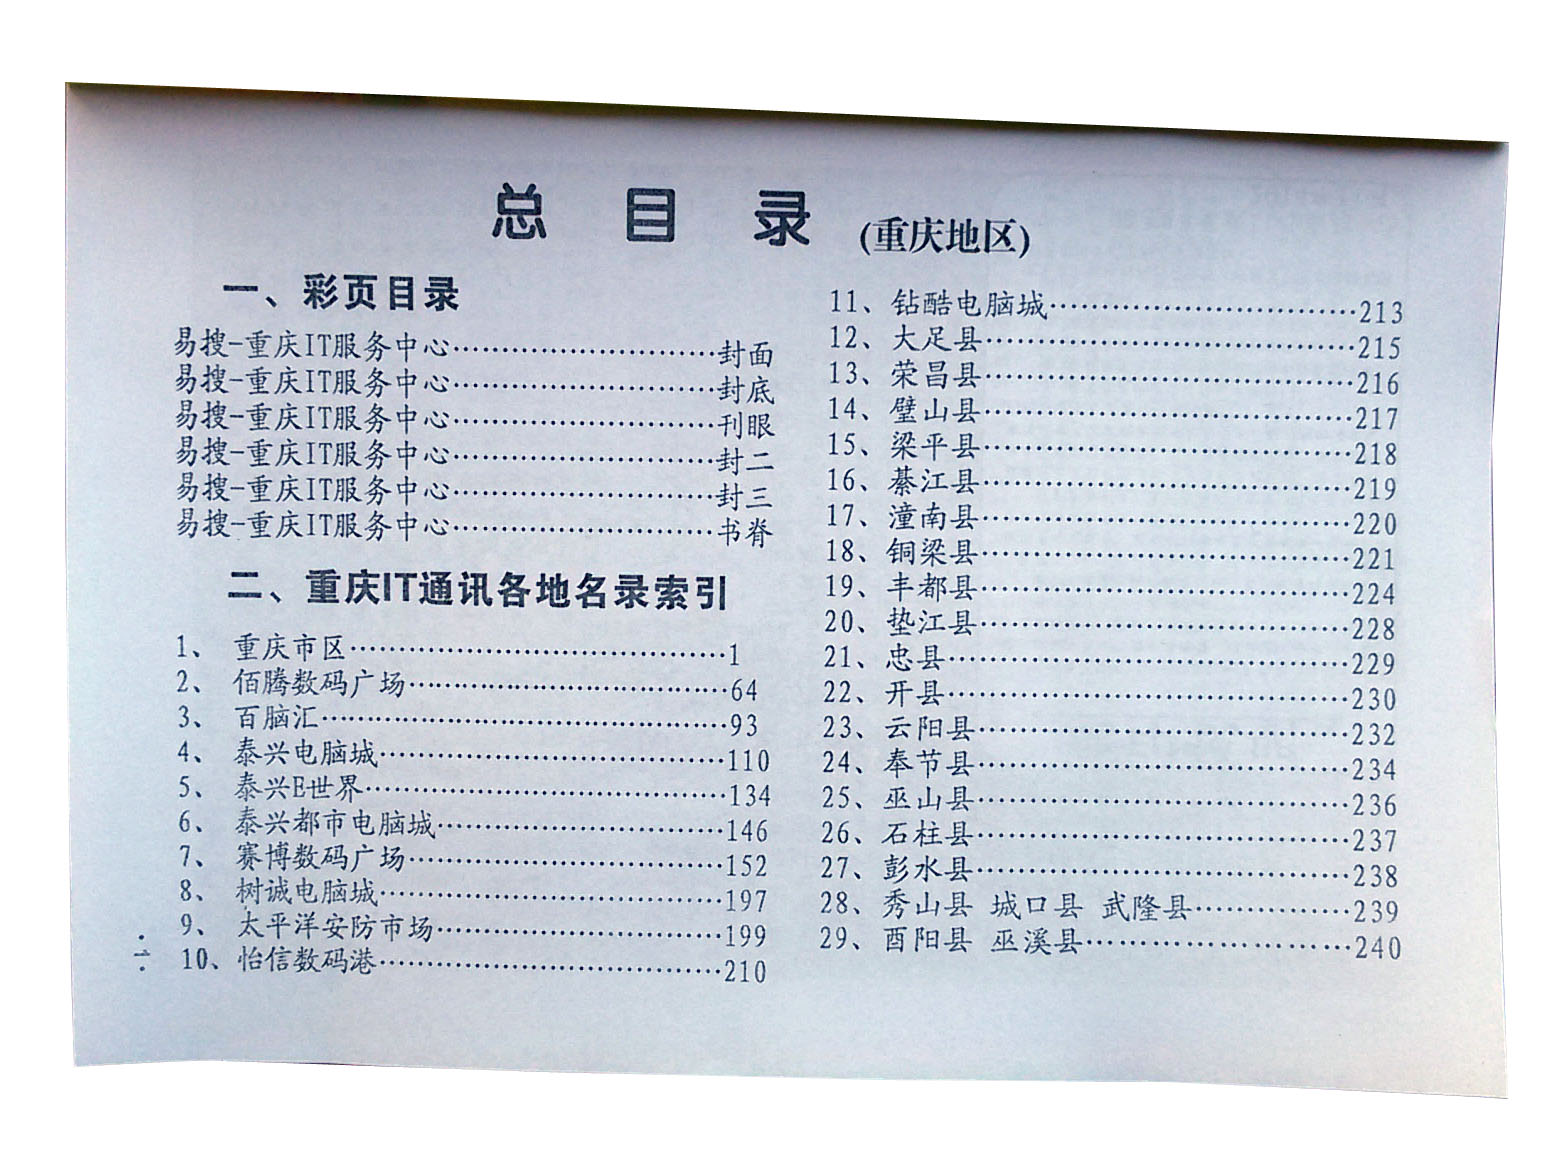 总 目 录 (重庆地区)
一、彩页目录
易搜-重庆IT服务中心…………………………封面
易搜-重庆IT服务中心…………………………封底
易搜-重庆IT服务中心…………………………刊眼
易搜-重庆IT服务中心…………………………封二
易搜-重庆IT服务中心…………………………封三
易搜-重庆IT服务中心…………………………书脊
二、重庆IT通讯各地名录索引
1、 重庆市区……………………………………1
2、 佰腾数码广场………………………………64
3、 百脑汇………………………………………93
4、 泰兴电脑城…………………………………110
5、 泰兴E世界……………………………………134
6、 泰兴都市电脑城……………………………146
7、 赛博数码广场………………………………152
8、 树诚电脑城…………………………………197
9、 太平洋安防市场……………………………199
10、怡信数码港…………………………………210
11、钻酷电脑城………………………………213
12、大足县……………………………………215
13、荣昌县……………………………………216
14、璧山县……………………………………217
15、梁平县……………………………………218
16、綦江县……………………………………219
17、潼南县……………………………………220
18、铜梁县……………………………………221
19、丰都县……………………………………224
20、垫江县……………………………………228
21、忠县………………………………………229
22、开县………………………………………230
23、云阳县……………………………………232
24、奉节县……………………………………234
25、巫山县……………………………………236
26、石柱县……………………………………237
27、彭水县……………………………………238
28、秀山县 城口县 武隆县………………239
29、酉阳县 巫溪县…………………………240
·一·